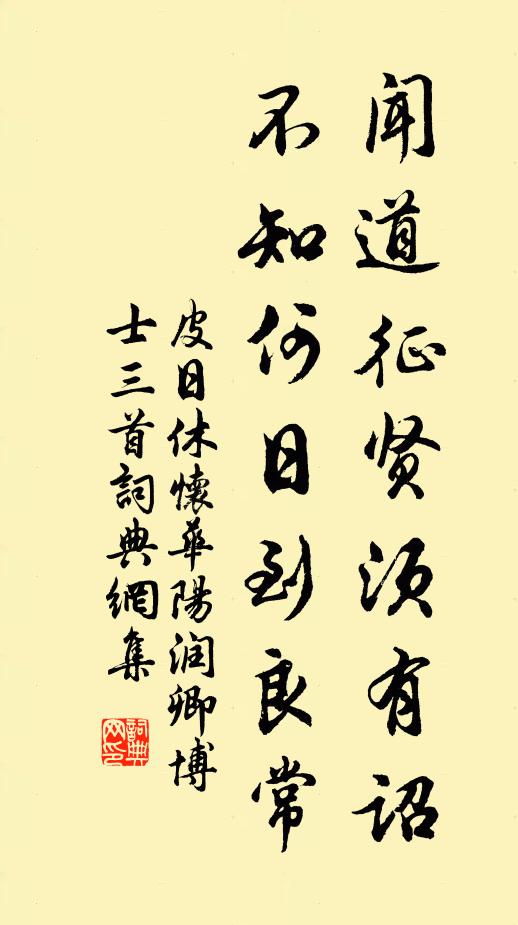 闻道征贤须有詔
不知何日到良常
皮日休懷華陽润卿博
士三首詞典網集
詞典
网印